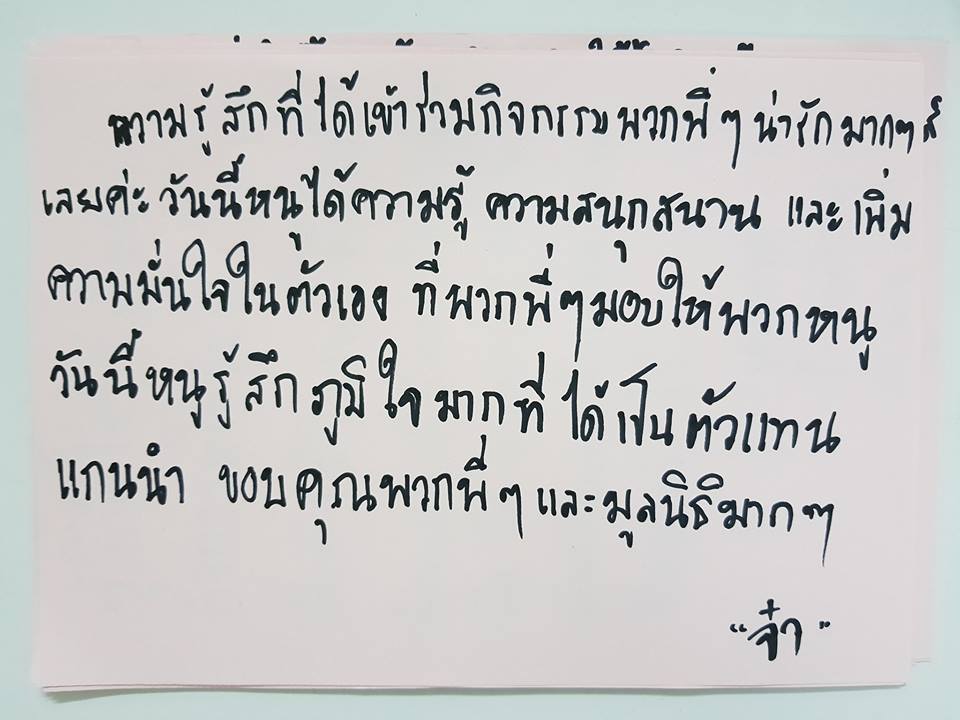 ความรู้สึกที่ได้เข้าร่วมกิจกรรมพวกพี่ๆ น่ารักมากๆ
เลยค่ะ วันนี้หนูได้ความรู้ ความสนุกสนาน และเพิ่ม
ความมั่นใจในตัวเอง ที่พวกพี่ๆมอบให้พวกหนู
วันนี้หนูรู้สึกภูมิใจมากที่ได้เป็นตัวแทน
แกนนำ ขอบคุณพวกพี่ๆและมูลนิธิมากๆ
"จ๋า"